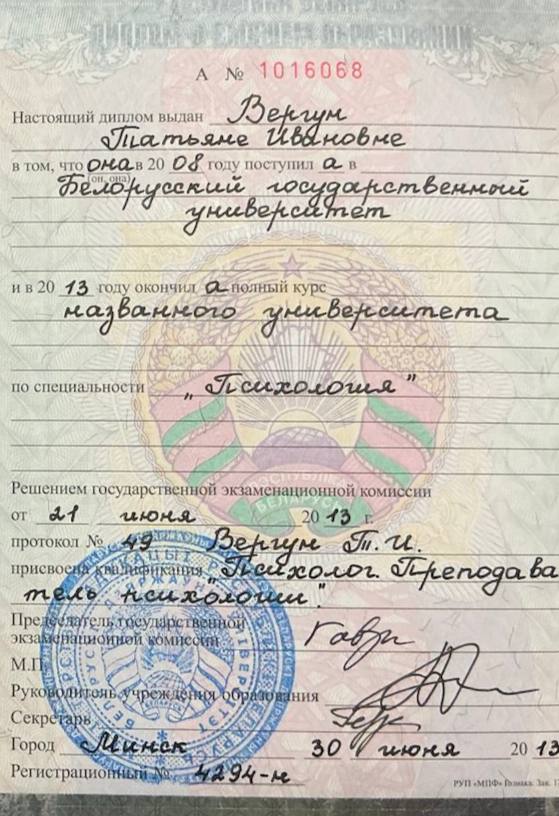 А № 1016068
Настоящий диплом выдан Вергун
Татьяне Ивановне
в том, что она в 20 08 году поступил а в
(он, она)
Белорусский государственный
университет
и в 20 13 году окончил а полный курс
названного университета
по специальности „Психология”
Решением государственной экзаменационной комиссии
от 21 июня 20 13 г.
протокол № 49 Вергун Т. И.
присвоена квалификация „Психолог. Преподава
тель психологии”.
Председатель государственной
экзаменационной комиссии
М.П.
Руководитель учреждения образования
Секретарь
Город Минск 30 июня 20 13
Регистрационный № 4294-н
РУП «МПФ» Гознака. Зак.